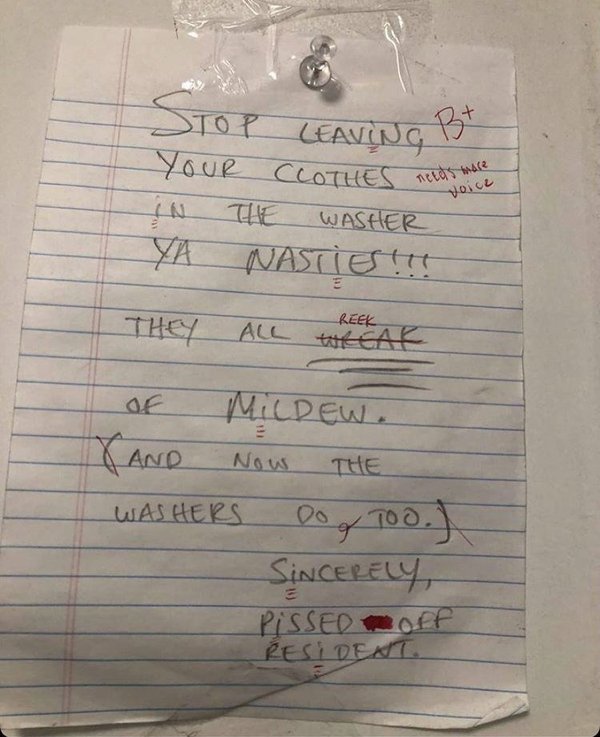 STOP LEAViNG B+
YOUR CLOTHES needs more
voice
iN THE WASHER
YA NASTiES!!!
REEK
THEY ALL WREAK
OF MiLDEW.
(AND NOW THE
WASHERS DO, TOO.)
SiNCERELY,
PiSSED OFF
RESiDENT.